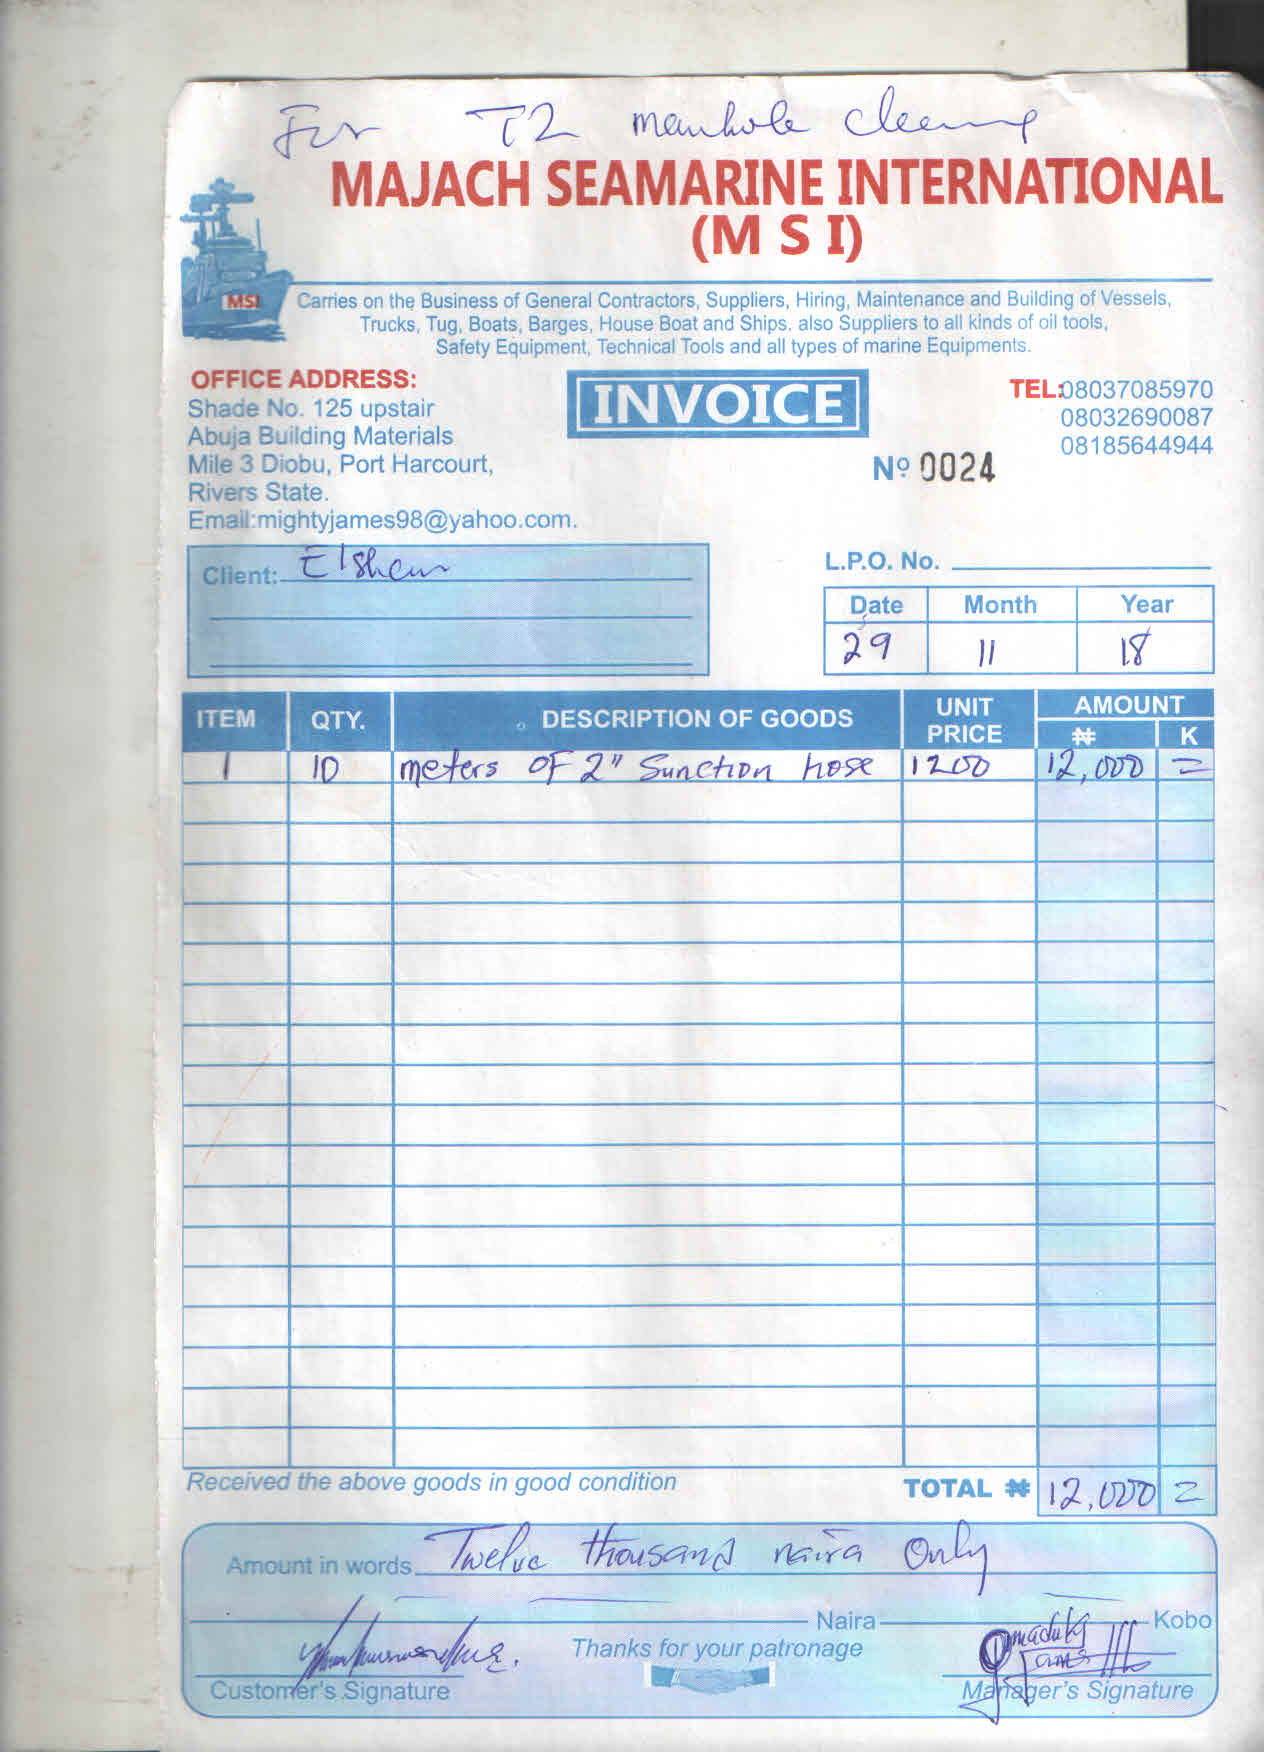 For T2 manhole cleaning
MAJACH SEAMARINE INTERNATIONAL
(M S I)
MSI
Carries on the Business of General Contractors, Suppliers, Hiring, Maintenance and Building of Vessels,
Trucks, Tug, Boats, Barges, House Boat and Ships. also Suppliers to all kinds of oil tools,
Safety Equipment, Technical Tools and all types of marine Equipments.
OFFICE ADDRESS:
Shade No. 125 upstair
Abuja Building Materials
Mile 3 Diobu, Port Harcourt,
Rivers State.
Email:mightyjames98@yahoo.com.
INVOICE
Nº 0024
TEL:08037085970
08032690087
08185644944
Client:
L.P.O. No.
Date Month Year
29 11 18
ITEM QTY. DESCRIPTION OF GOODS UNIT PRICE AMOUNT ₦ K
1 10 meters OF 2" Sunction hose 1200 12,000 =
Received the above goods in good condition TOTAL ₦ 12,000 =
Amount in words Twelve thousand naira Only
Naira Kobo
Thanks for your patronage
Customer's Signature Manager's Signature